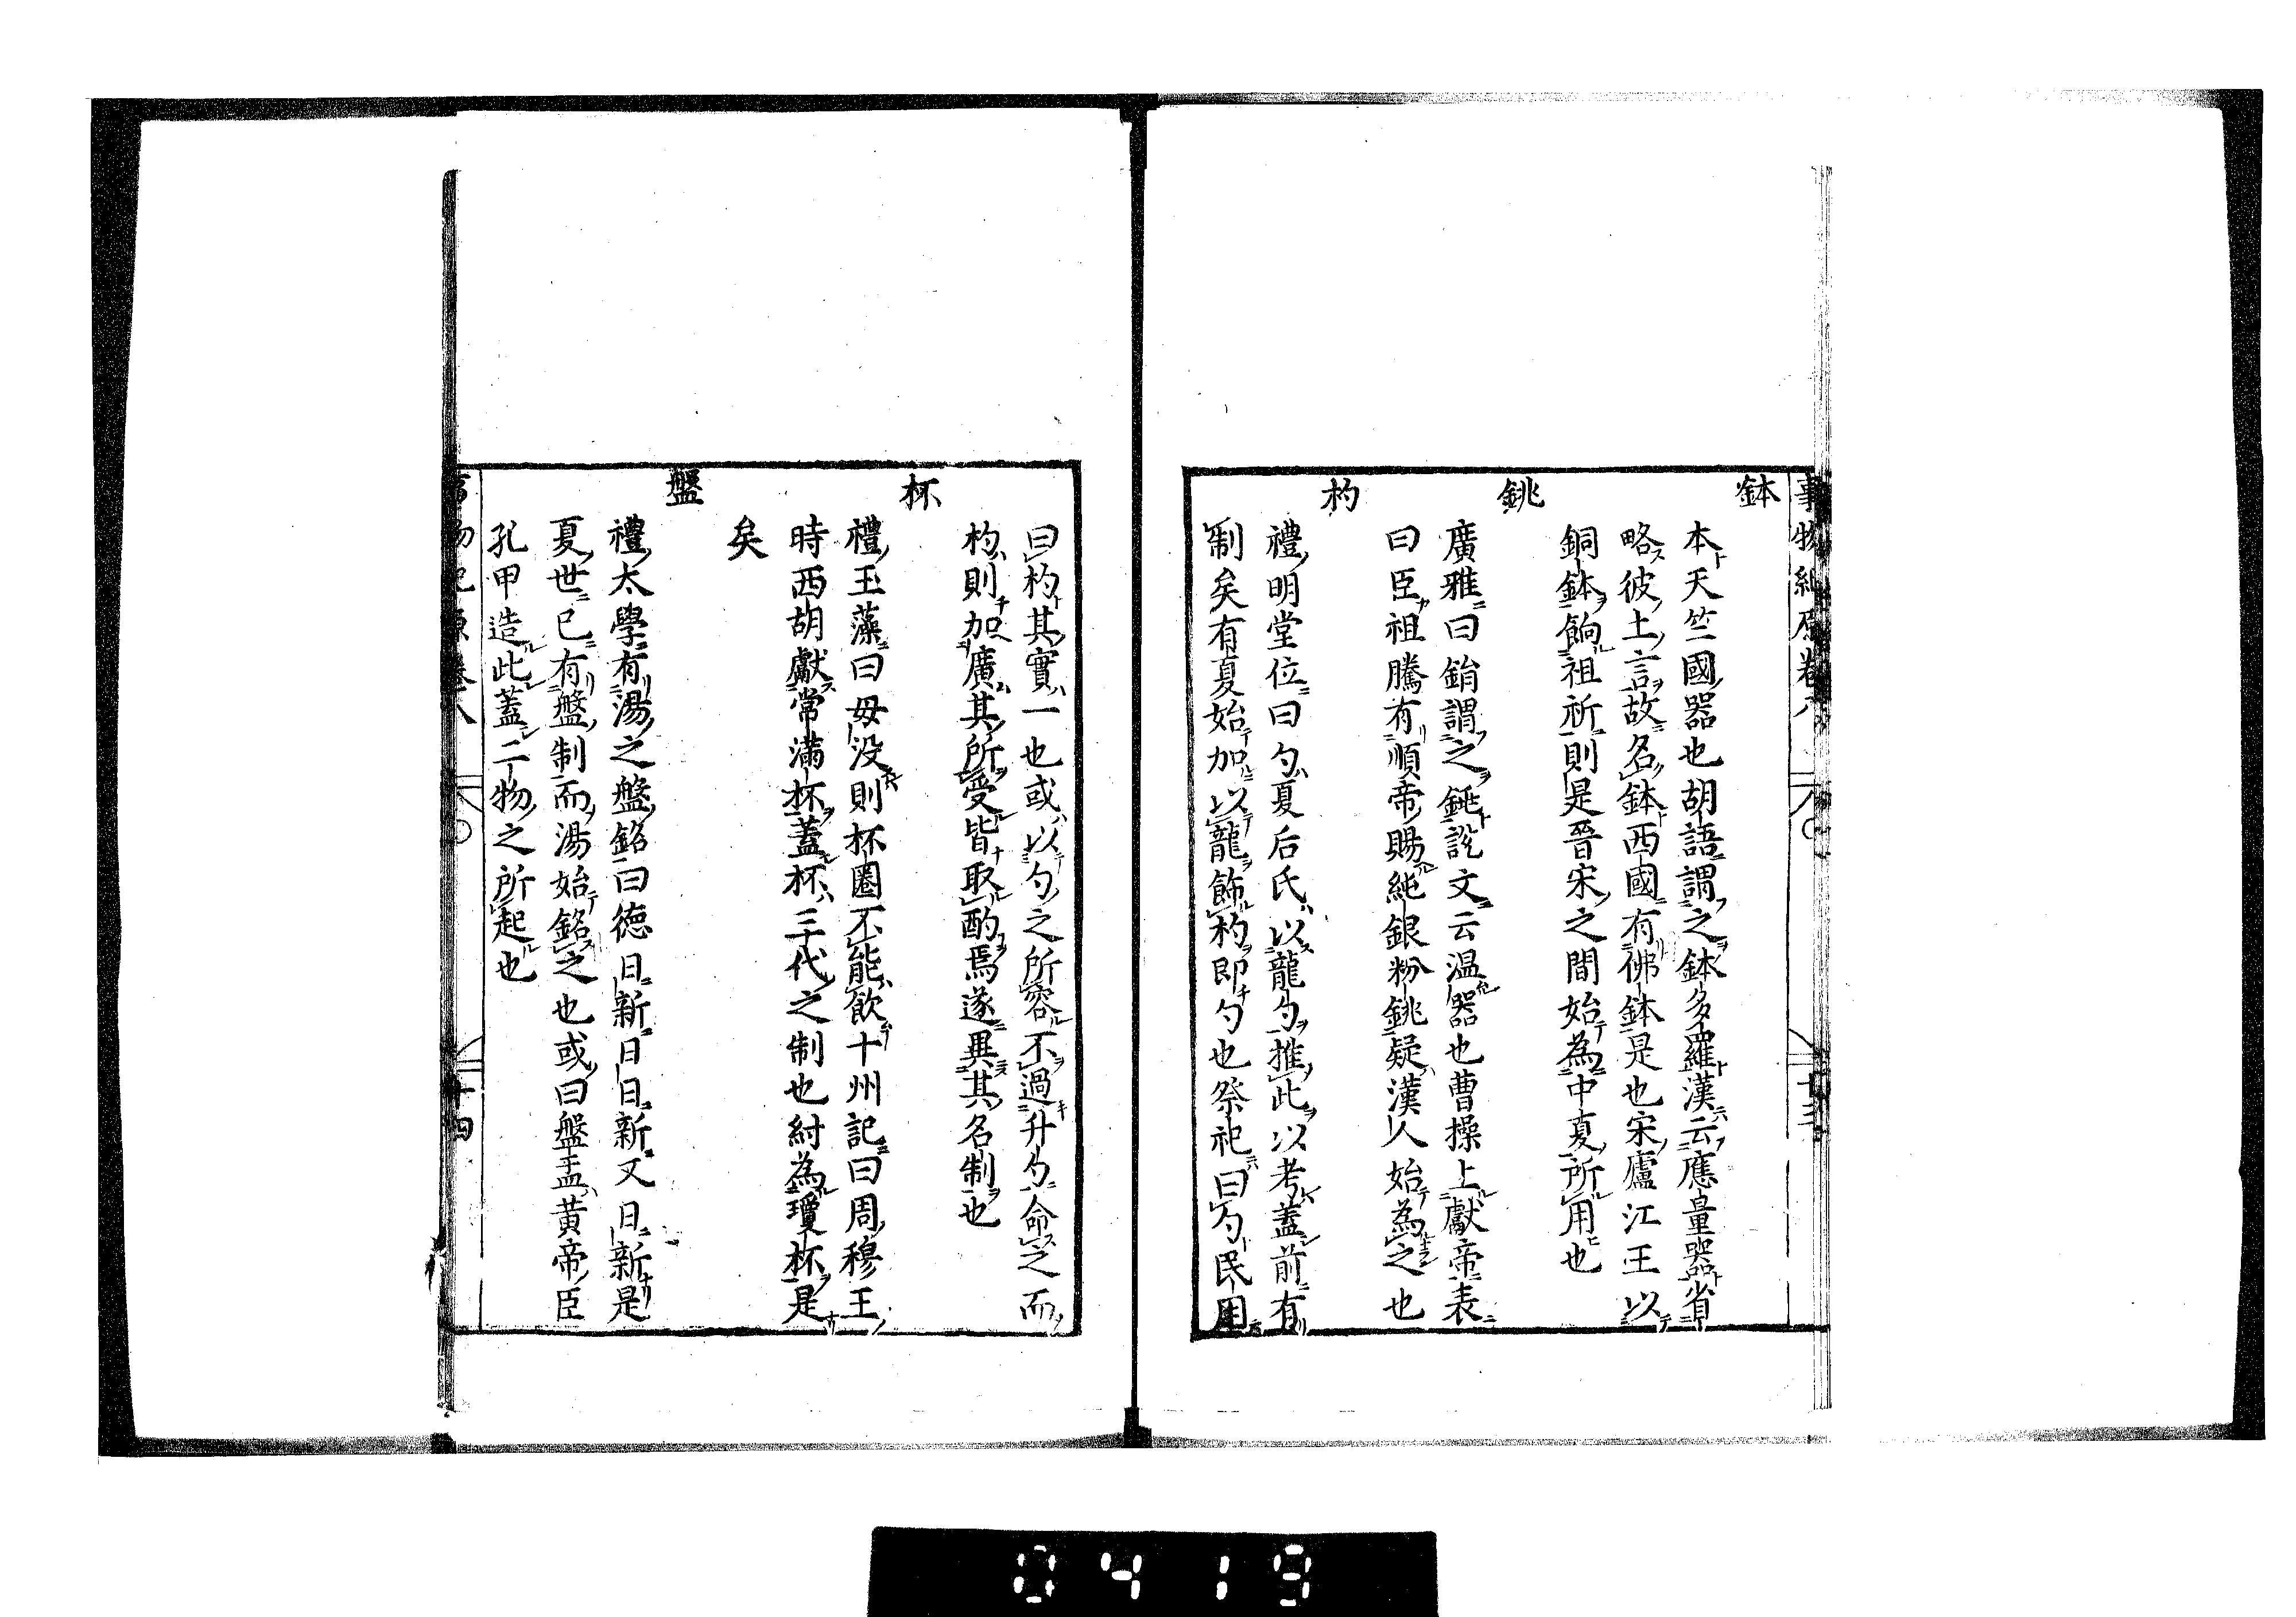 事物紀原卷八
十三
鉢
本天竺國器也胡語謂之鉢多羅漢云應量器省
略彼土言故名鉢西國有佛鉢是也宋廬江王以
銅鉢餉祖祈則是晉宋之間始為中夏所用也
銚
廣雅曰鋗謂之銚説文云温器也曹操上獻帝表
曰臣祖騰有順帝賜純銀粉銚疑漢人始為之也
杓
禮明堂位曰勺夏后氏以龍勺推此以考蓋前有
制矣有夏始加以龍飾杓即勺也祭祀曰勺民用
曰杓其實一也或以勺之所容不過升勺命之而
杓則加廣其所受皆取酌焉遂異其名制也
杯
禮玉藻曰毋没則杯圏不能飲十州記曰周穆王
時西胡獻常滿杯蓋杯三代之制也紂為瓊杯是
矣
盤
禮太學有湯之盤銘曰徳日新日日新又日新是
夏世已有盤制而湯始銘之也或曰盤盂黄帝臣
孔甲造此蓋二物之所起也
事物紀原卷八
十四
0419